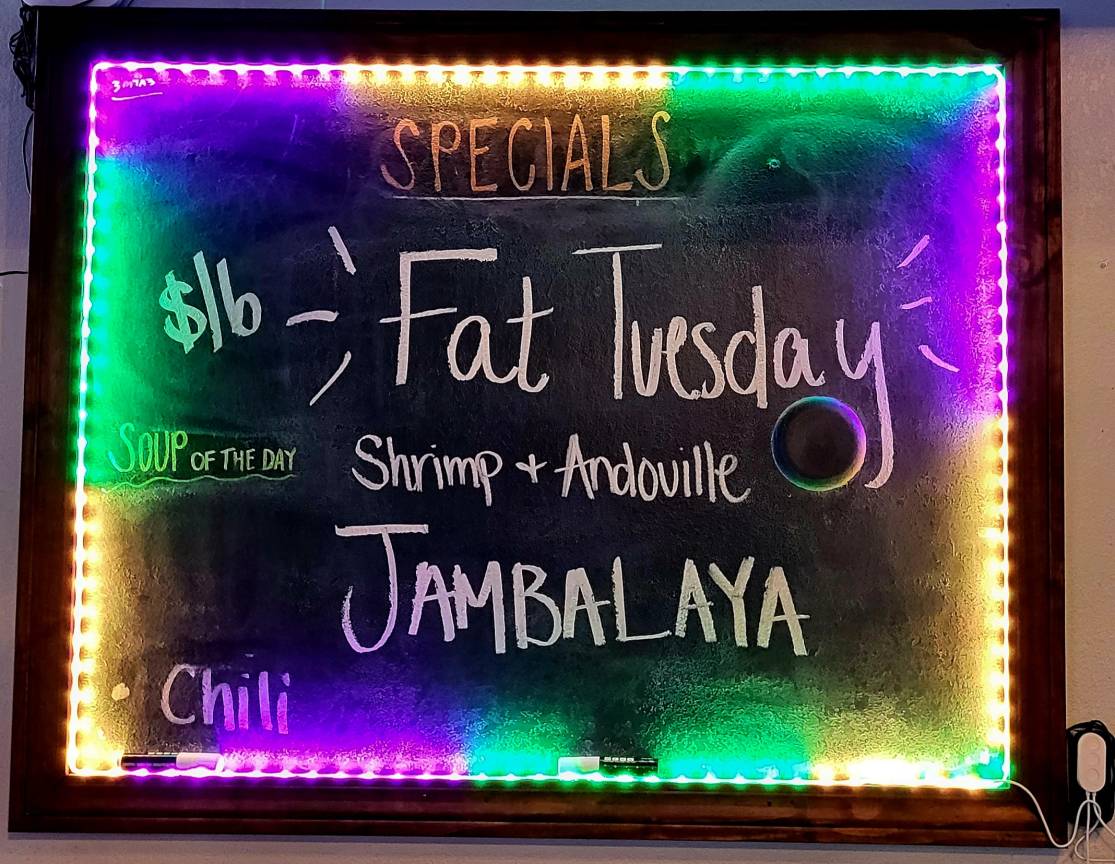 SPECIALS
$/lb
Fat Tuesday
SOUP OF THE DAY
Shrimp + Andouille
JAMBALAYA
• Chili